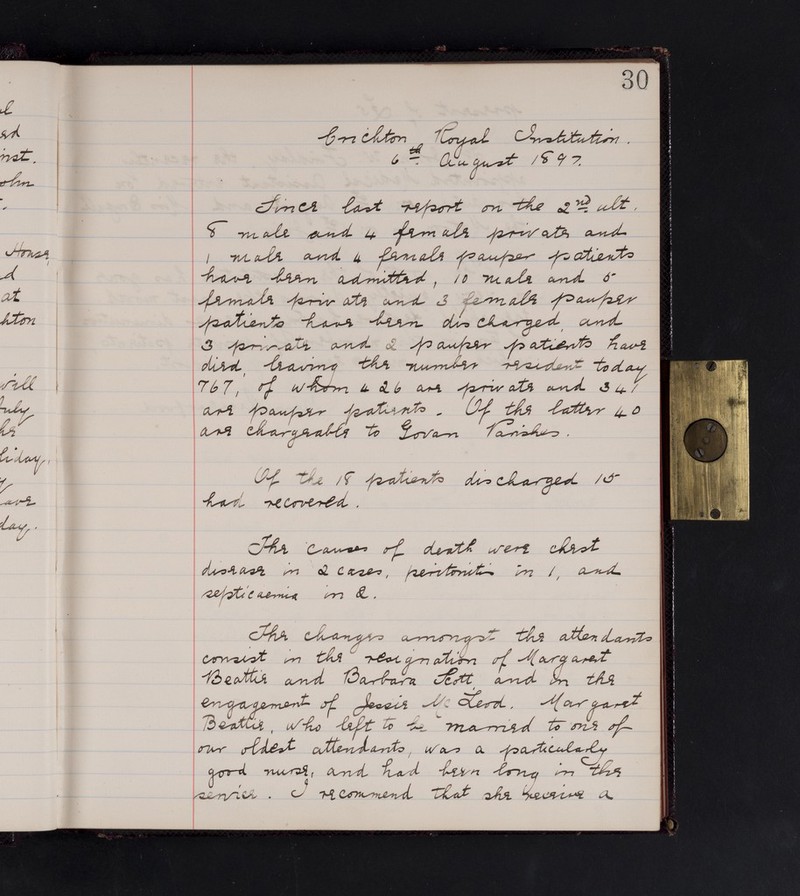 30
Crichton Royal Institution.
6th August 1897.
Since last report on the 2nd ult.
8 male and 4 female private and
1 male and 4 female pauper patients
have been admitted, 10 male and 5
female private and 3 female pauper
patients have been discharged, and
3 private and 2 pauper patients have
died, leaving the number resident today
767, of whom 426 are private and 341
are pauper patients. Of the latter 40
are chargeable to Govan Parishes.
Of the 18 patients discharged 15
had recovered.
The causes of death were chest
disease in 2 cases, peritonitis in 1, and
septicaemia in 2.
The changes amongst the attendants
consist in the resignation of Margaret
Beattie and Barbara Scott and in the
engagement of Jessie McLeod. Margaret
Beattie, who left to be married to one of
our oldest attendants, was a particularly
good nurse, and had been long in the
service. I recommend that she receive a
ed
inst.
House,
d
at
hton
will
July
he
liday,
y
have
day.